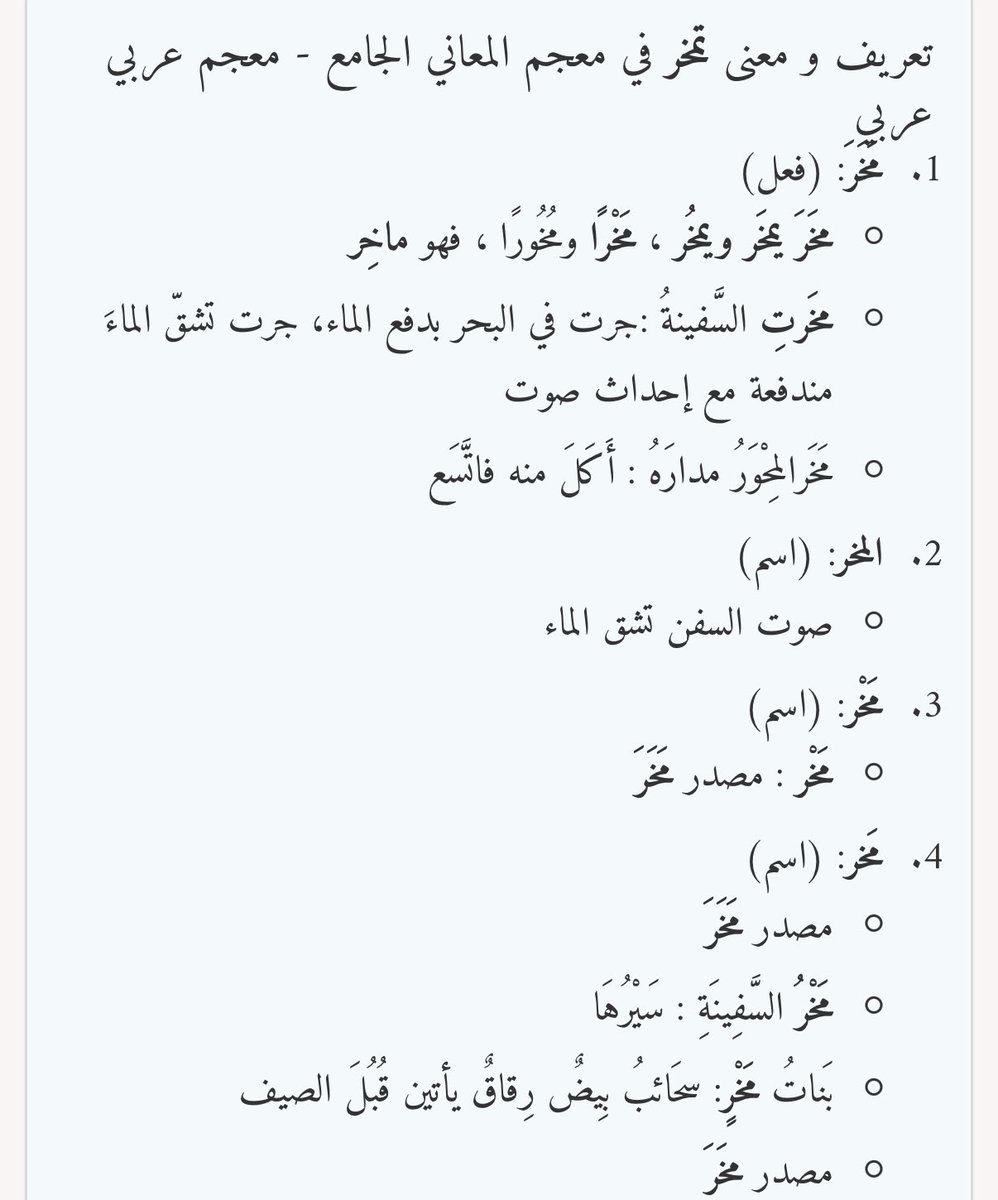 تعريف و معنى تمخر في معجم المعاني الجامع - معجم عربي
عربي
1. مَخَرَ: (فعل)
○ مخَرَ يمخَر ويمخُر ، مَخْرًا ومُخُورًا ، فهو ماخِر
○ مخَرتِ السَّفينةُ :جرت في البحر بدفع الماء، جرت تشقّ الماءَ
مندفعة مع إحداث صوت
○ مَخَرالمِحْوَرُ مدارَهُ : أَكَلَ منه فاتَّسَع
2. المخر: (اسم)
○ صوت السفن تشق الماء
3. مَخْر: (اسم)
○ مَخْر : مصدر مَخَرَ
4. مَخر: (اسم)
○ مصدر مَخَرَ
○ مَخْرُ السَّفِينَةِ : سَيْرُهَا
○ بَناتُ مَخْرٍ: سحَائبُ بِيضٌ رِقاقٌ يأتين قُبُلَ الصيف
○ مصدر مخَرَ